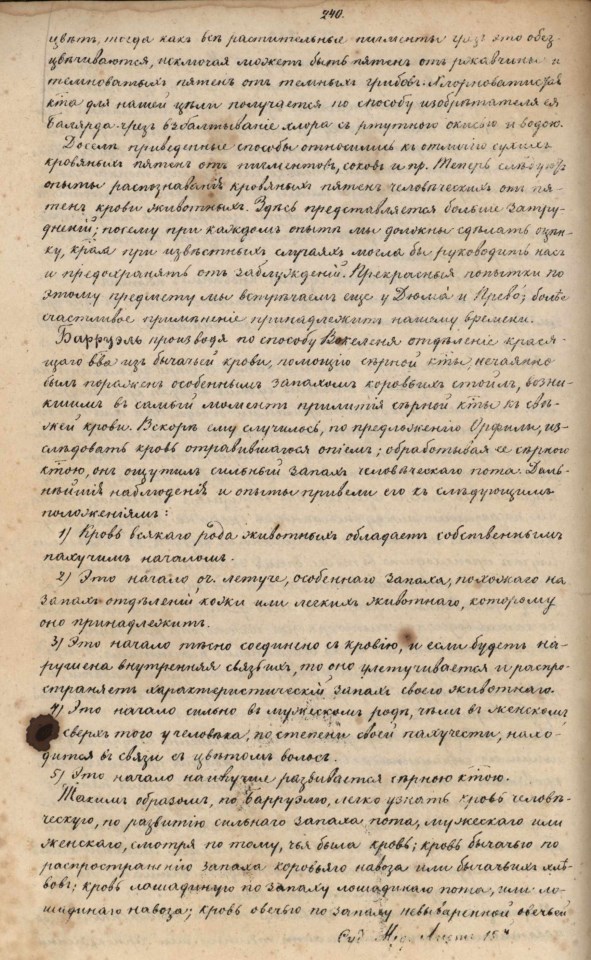 240.
цвѣтъ, тогда какъ всѣ растительные пигменты чрезъ это обез-
цвѣчиваются, исключая можетъ быть пятенъ отъ ржавчины и
темноватыхъ пятенъ отъ темныхъ грибовъ. Хлорноватистая
кта для нашей цѣли получается по способу изобрѣтателя ея
Балярда чрезъ взбалтываніе хлора съ ртутного окисью и водою.
Доселѣ приведенные способы относились къ отличію сухихъ
кровяныхъ пятенъ отъ пигментовъ, соковъ и пр. Теперь слѣдуютъ
опыты распознаванія кровяныхъ пятенъ человѣческихъ отъ пя-
тенъ крови животныхъ. Здѣсь представляется больше затру-
дненій; посему при каждомъ опытѣ мы должны сдѣлать оцѣн-
ку, края при извѣстныхъ случаяхъ могла бы руководить насъ
и предохранять отъ заблужденій. Прекрасныя попытки по
этому предмету мы встрѣчаемъ еще у Дюма и Прево; болѣе
счастливое примѣненіе принадлежитъ нашему времени.
Барруэль производя по способу Вокеленя отдѣленіе крася-
щаго вва изъ бычачьей крови, помощію сѣрной кты, нечаянно
былъ пораженъ особеннымъ запахомъ коровьихъ стойлъ, возни-
кшимъ въ самый моментъ прилитія сѣрной кты къ свѣ-
жей крови. Вскорѣ ему случилось, по предложенію Орфилы, из-
слѣдовать кровь отравившагося опіемъ; обработывая ее сѣрною
ктою, онъ ощутилъ сильный запахъ человѣческаго пота. Даль-
нѣйшія наблюденія и опыты привели его къ слѣдующимъ
положеніямъ:
1) Кровь всякаго рода животныхъ обладаетъ собственнымъ
пахучимъ началомъ.
2) Это начало оч. летуче, особеннаго запаха, похожаго на
запахъ отдѣленій кожи или легкихъ животнаго, которому
оно принадлежитъ.
3) Это начало тѣсно соединено съ кровію, и если будетъ на-
рушена внутренняя связь ихъ, то оно улетучивается и распро-
страняетъ характеристическій запахъ своего животнаго.
4) Это начало сильно въ мужескомъ родѣ, чѣмъ въ женскомъ
сверхъ того у человѣка, по степени своей пахучести, нахо-
дится въ связи съ цвѣтомъ волосъ.
5) Это начало наилучше развивается сѣрною ктою.
Такимъ образомъ, по Барруэлю, легко узнать кровь человѣ-
ческую, по развитію сильнаго запаха пота, мужескаго или
женскаго, смотря по тому, чья была кровь; кровь бычачью по
распространенію запаха коровьяго навоза или бычачьихъ хлѣ-
вовъ; кровь лошадиную по запаху лошадинаго пота, или ло-
шадинаго навоза; кровь овечью по запаху невываренной овечьей
Суд. Мед. Листъ 15й